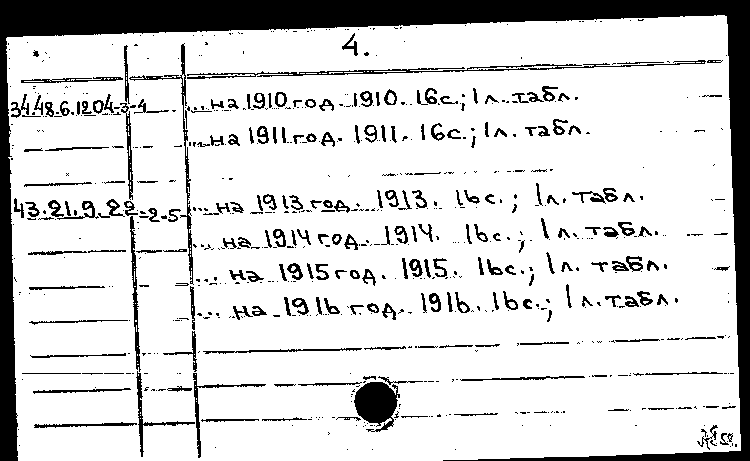 4.
34.48.6.1204-3-4 ... на 1910 год. 1910. 16с.; 1л. табл.
... на 1911 год. 1911. 16с.; 1л. табл.
43.21.9.22-2-5 ... на 1913 год. 1913. 16с.; 1л. табл.
... на 1914 год. 1914. 16с.; 1л. табл.
... на 1915 год. 1915. 16с.; 1л. табл.
... на 1916 год. 1916. 16с.; 1л. табл.